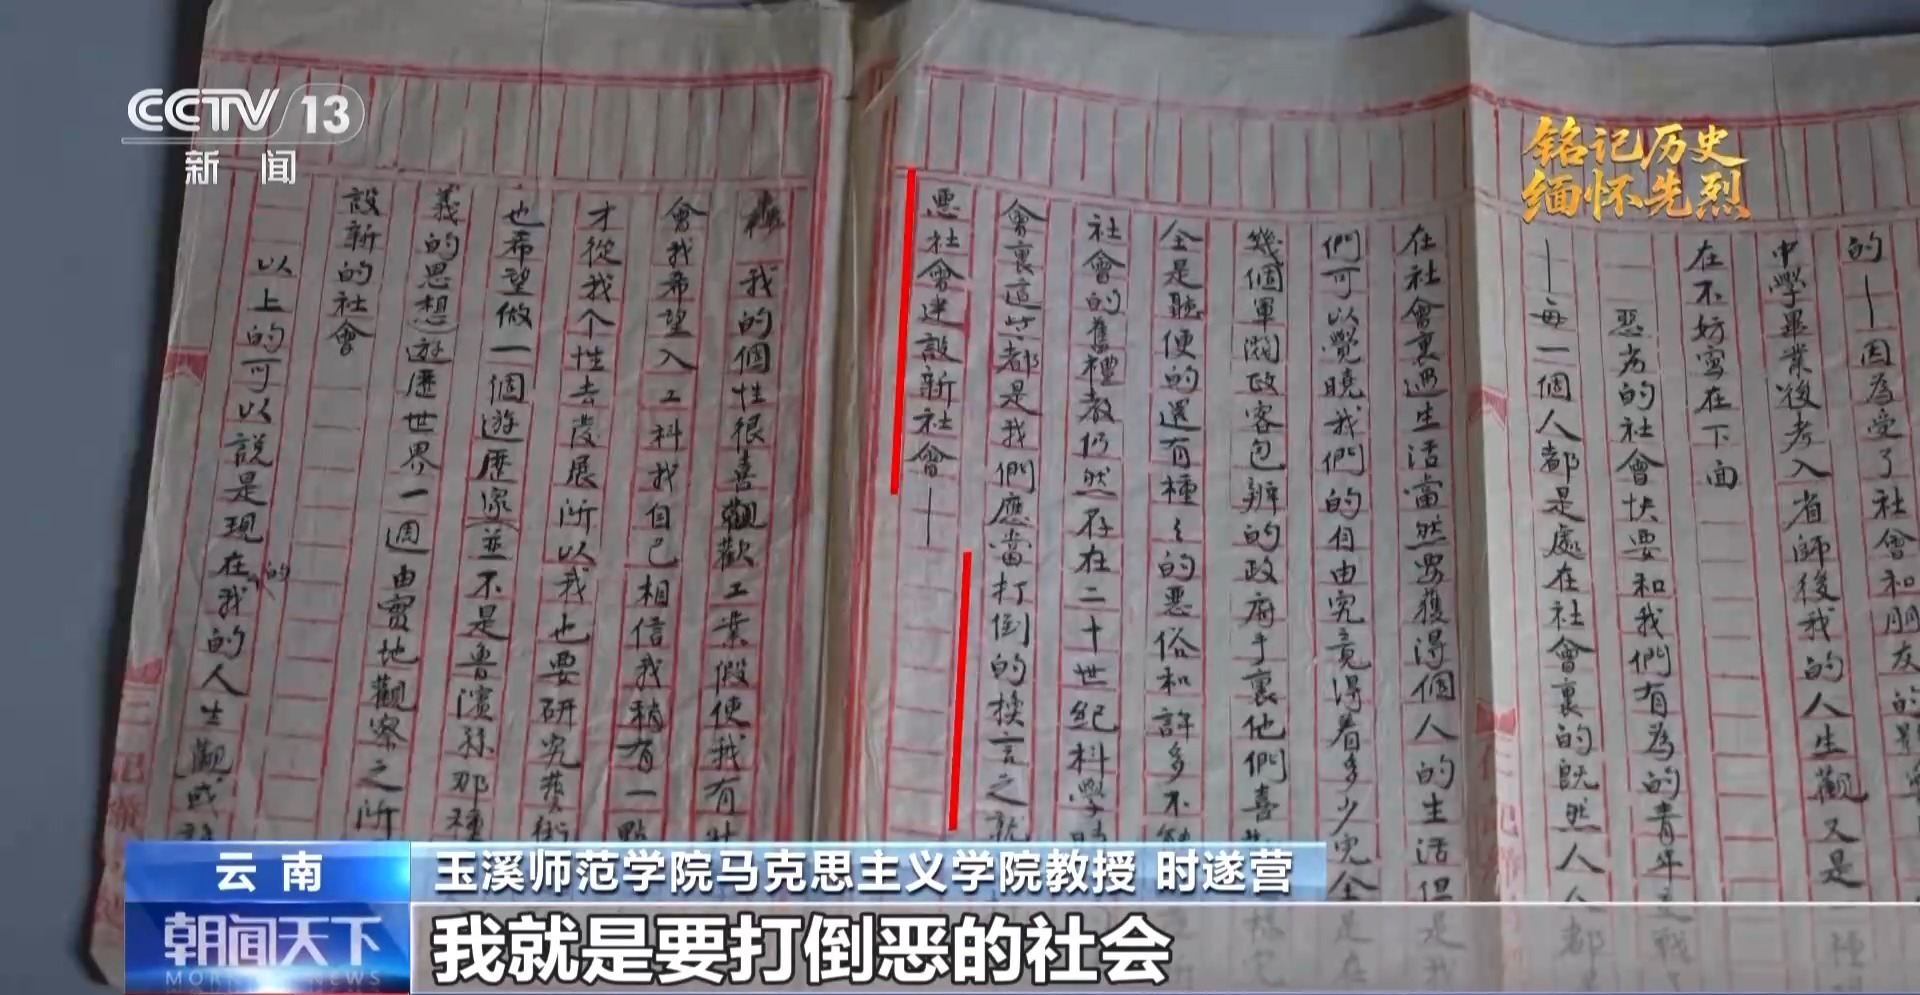 CCTV 13
新闻
铭记历史
缅怀先烈
的—因為受了社會和朋友的
中學畢業後考入省師後我的人生觀又是一種
在不妨寫在下面
惡劣的社會快要和我們有為的青年
—每一個人都是處在社會裏的既然人人都
在社會裏過生活當然要獲得個人的生活但是我
們可以覺曉我們的自由究竟得着多少完全是在
幾個軍閥政客包辦的政府手裏他們喜
全是聽便的還有種々的惡俗和許多不
社會的舊禮教仍然存在二十世紀科學時
會裏這些都是我們應當打倒的換言之就
惡社會建設新社會—
我的個性很喜歡工業假使我有
會我希望入工科我自己相信我稍有一點
才從我个性去發展所以我也要研究藝術
也希望做一個遊歷家(並不是魯濱孫那種
義的思想)遊歷世界一週由實地觀察之所
設新的社會
以上的可以說是現在的我的人生觀或
云南
玉溪师范学院马克思主义学院教授 时遂营
朝闻天下
MORNING NEWS
我就是要打倒恶的社会